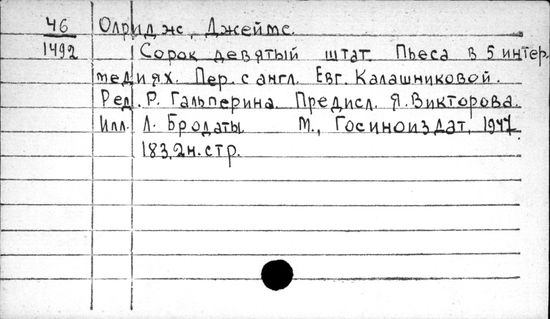 46 Олридж, Джеймс.
1492 Сорок девятый штат. Пьеса в 5 интер
медиях. Пер. с англ. Евг. Калашниковой.
Ред. Р. Гальперина. Предисл. Я. Викторова.
Илл. Л. Бродаты. М., Госиноиздат, 1947.
183,2н.стр.